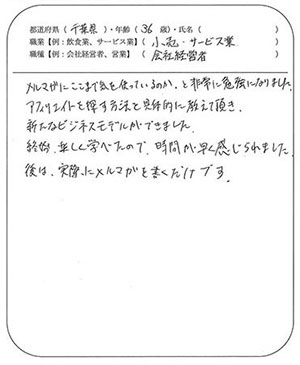 都道府県（千葉県）・年齢（36 歳）・氏名（　　　　）
職業【例：飲食業、サービス業】（小売・サービス業　）
職種【例：会社経営者、営業】（会社経営者　）
メルマガにここまで気を使っているのか、と非常に勉強になりました。
アフィリエイトを探す方法と具体的に教えて頂き、
新たなビジネスモデルができました。
終始、楽しく学べたので、時間が早く感じられました。
後は、実際にメルマガを書くだけです。